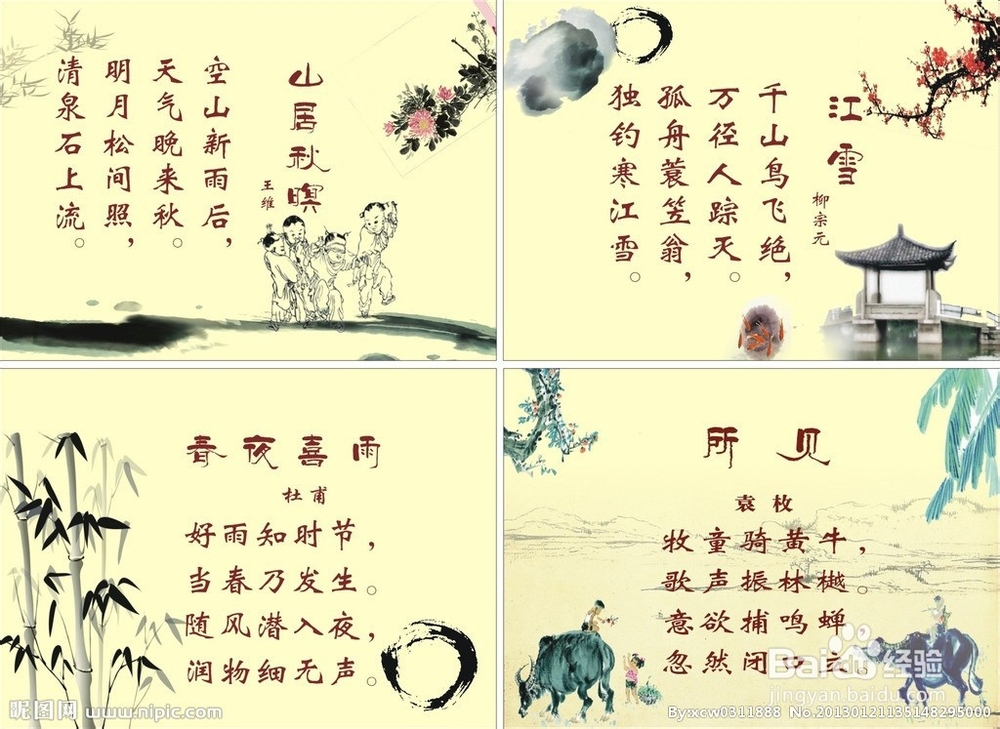 山居秋暝
王维
空山新雨后，
天气晚来秋。
明月松间照，
清泉石上流。
江雪
柳宗元
千山鸟飞绝，
万径人踪灭。
孤舟蓑笠翁，
独钓寒江雪。
春夜喜雨
杜甫
好雨知时节，
当春乃发生。
随风潜入夜，
润物细无声。
所见
袁枚
牧童骑黄牛，
歌声振林樾。
意欲捕鸣蝉
忽然闭口立。
Baidu经验
jingyan.baidu.com
昵图网 www.nipic.com
Byxcw0311888 No.20130121135148295000